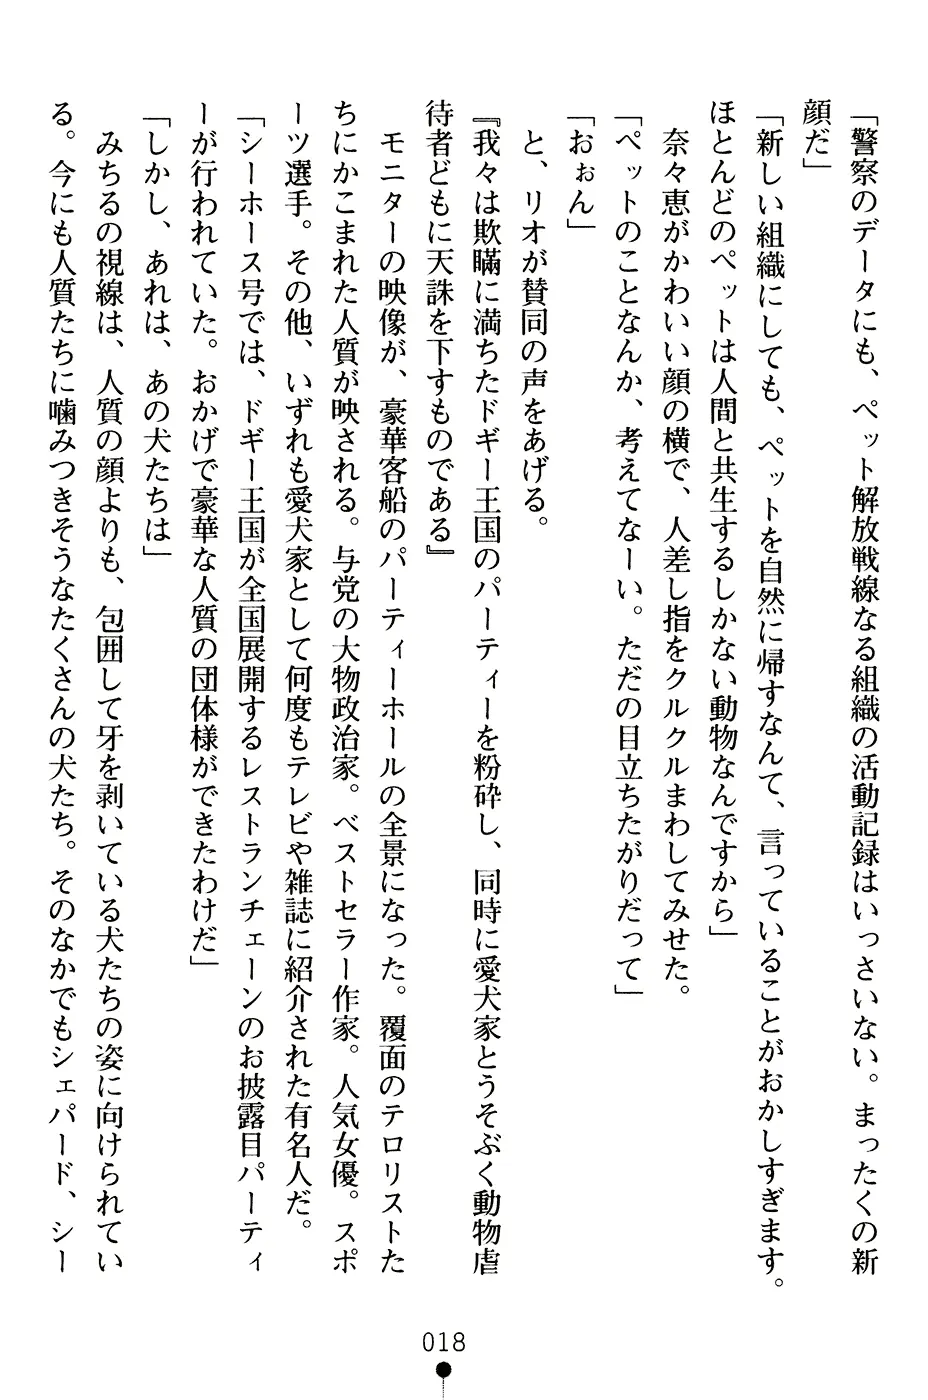 「警察のデータにも、ペット解放戦線なる組織の活動記録はいっさいない。まったくの新
顔だ」
「新しい組織にしても、ペットを自然に帰すなんて、言っていることがおかしすぎます。
ほとんどのペットは人間と共生するしかない動物なんですから」
奈々恵がかわいい顔の横で、人差し指をクルクルまわしてみせた。
「ペットのことなんか、考えてなーい。ただの目立ちたがりだって」
「おぉん」
と、リオが賛同の声をあげる。
『我々は欺瞞に満ちたドギー王国のパーティーを粉砕し、同時に愛犬家とうそぶく動物虐
待者どもに天誅を下すものである』
モニターの映像が、豪華客船のパーティーホールの全景になった。覆面のテロリストた
ちにかこまれた人質が映される。与党の大物政治家。ベストセラー作家。人気女優。スポ
ーツ選手。その他、いずれも愛犬家として何度もテレビや雑誌に紹介された有名人だ。
「シーホース号では、ドギー王国が全国展開するレストランチェーンのお披露目パーティ
ーが行われていた。おかげで豪華な人質の団体様ができたわけだ」
「しかし、あれは、あの犬たちは」
みちるの視線は、人質の顔よりも、包囲して牙を剥いている犬たちの姿に向けられてい
る。今にも人質たちに噛みつきそうなたくさんの犬たち。そのなかでもシェパード、シー
018